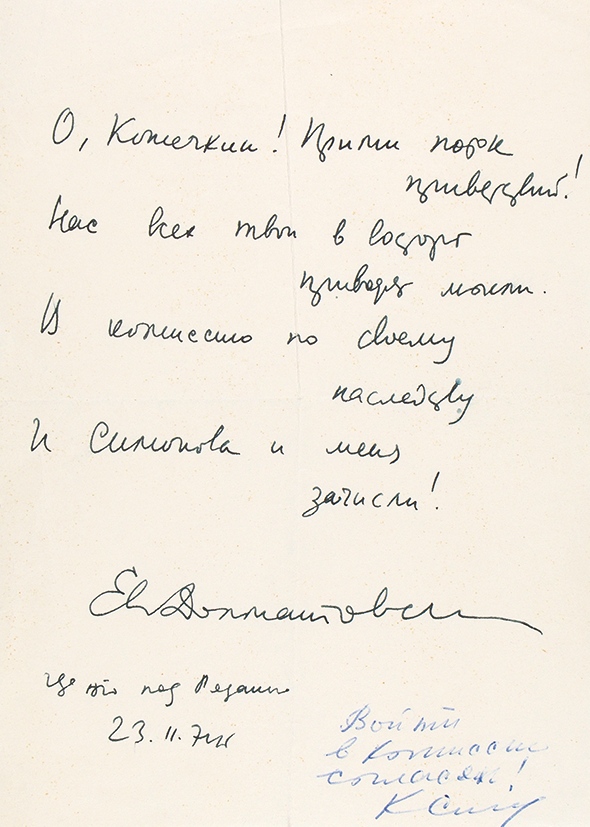 О, ! Прими поток
приветствий!
Нас всех твои в восторг
приводят мысли.
В комиссию по своему
наследству
И Симонова и меня
зачисли!
Евг Долматовский
Где-то под Рязанью
23.II.
Войти
в комиссию
согласен!
К Сим